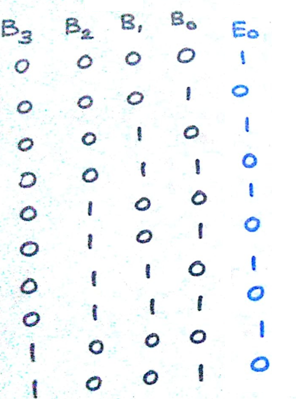 B₃ B₂ B₁ B₀ E₀
0 0 0 0 1
0 0 0 1 0
0 0 1 0 1
0 0 1 1 0
0 1 0 0 1
0 1 0 1 0
0 1 1 0 1
0 1 1 1 0
1 0 0 0 1
1 0 0 1 0